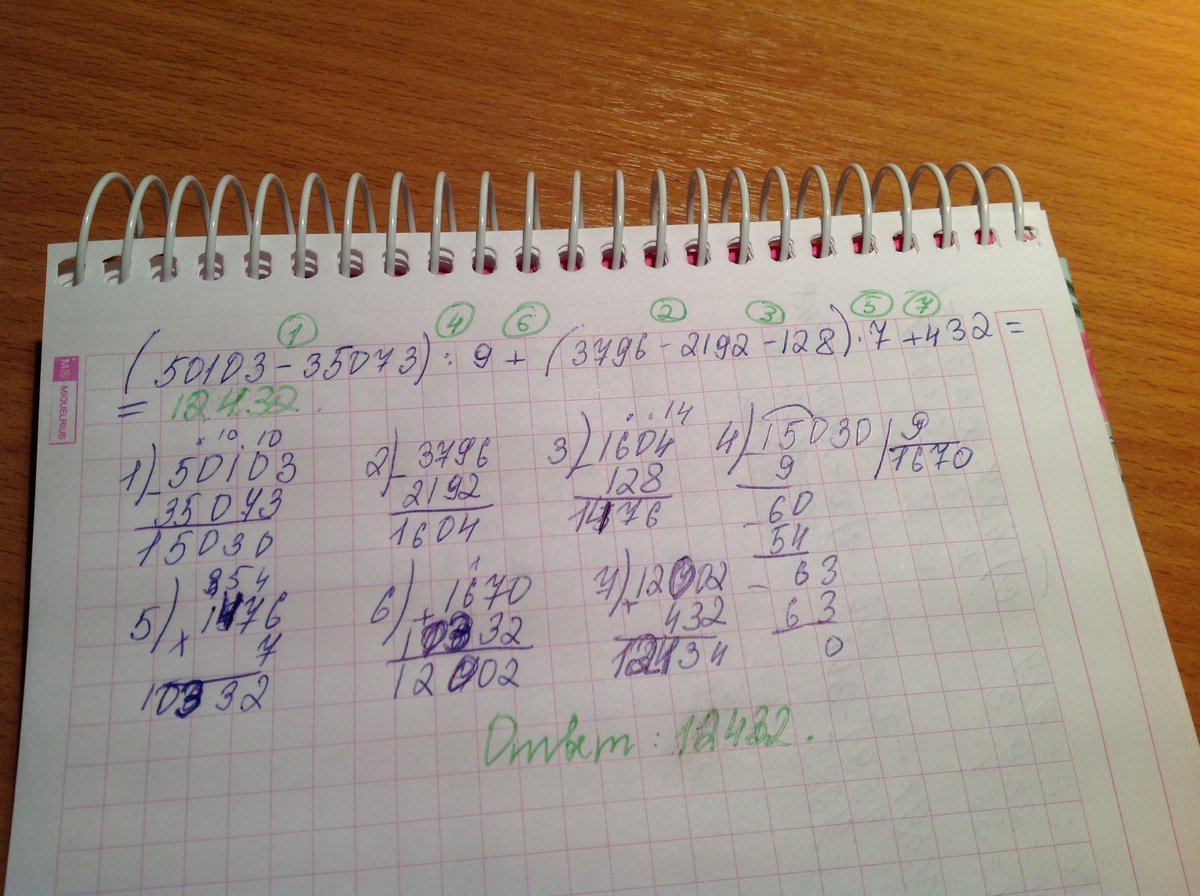 1 4 6 2 3 5 7
(50103-35073):9+(3796-2192-128)·7+432=
=12432.
1) 50103 - 35073 15030
2) 3796 - 2192 1604
3) 1604 - 128 1476
4) 15030 | 9 1670
9
60
54
63
63
0
5) 1476 × 7 10332
6) 1670 + 10332 12002
7) 12002 + 432 12434
Ответ: 12432.
MIQUELRIUS